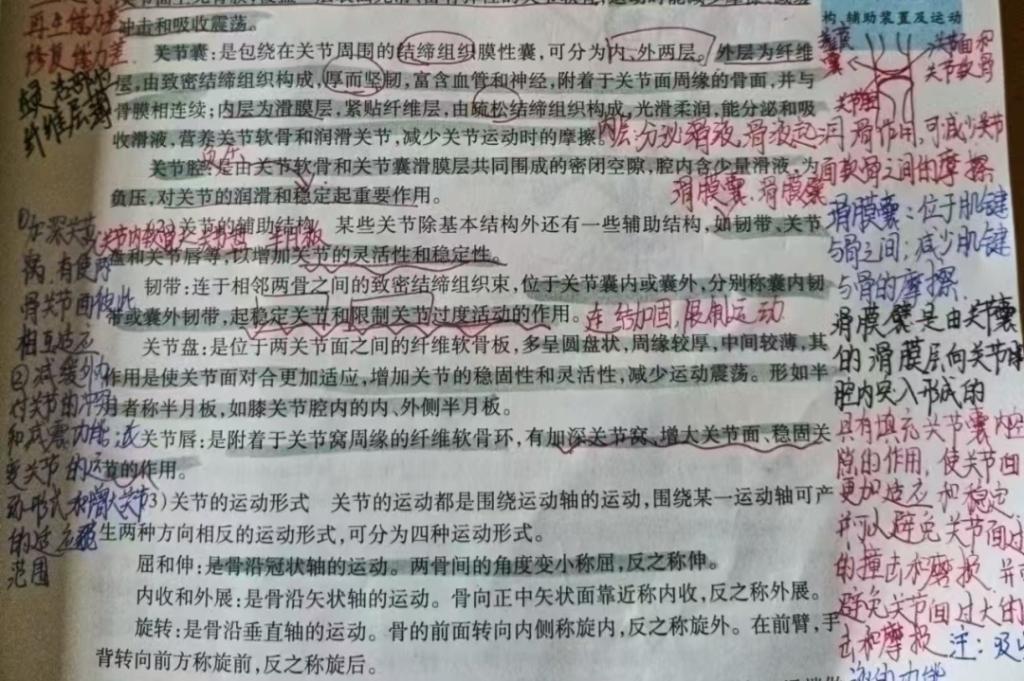 冲击和吸收震荡。
构、辅助装置及运动
关节囊:是包绕在关节周围的结缔组织膜性囊,可分为内、外两层。外层为纤维
层,由致密结缔组织构成,厚而坚韧,富含血管和神经,附着于关节面周缘的骨面,并与
骨膜相连续;内层为滑膜层,紧贴纤维层,由疏松结缔组织构成,光滑柔润,能分泌和吸
收滑液,营养关节软骨和润滑关节,减少关节运动时的摩擦。
关节腔:是由关节软骨和关节囊滑膜层共同围成的密闭空隙,腔内含少量滑液,为
负压,对关节的润滑和稳定起重要作用。
(2)关节的辅助结构 某些关节除基本结构外还有一些辅助结构,如韧带、关节
盘和关节唇等,以增加关节的灵活性和稳定性。
韧带:连于相邻两骨之间的致密结缔组织束,位于关节囊内或囊外,分别称囊内韧
带或囊外韧带,起稳定关节和限制关节过度活动的作用。
关节盘:是位于两关节面之间的纤维软骨板,多呈圆盘状,周缘较厚,中间较薄,其
作用是使关节面对合更加适应,增加关节的稳固性和灵活性,减少运动震荡。形如半
月者称半月板,如膝关节腔内的内、外侧半月板。
关节唇:是附着于关节窝周缘的纤维软骨环,有加深关节窝、增大关节面、稳固关
节的作用。
(3)关节的运动形式 关节的运动都是围绕运动轴的运动,围绕某一运动轴可产
生两种方向相反的运动形式,可分为四种运动形式。
屈和伸:是骨沿冠状轴的运动。两骨间的角度变小称屈,反之称伸。
内收和外展:是骨沿矢状轴的运动。骨向正中矢状面靠近称内收,反之称外展。
旋转:是骨沿垂直轴的运动。骨的前面转向内侧称旋内,反之称旋外。在前臂,手
背转向前方称旋前,反之称旋后。
再生能力差
修复能力差
纤维层薄
关节面和
关节软骨
内层:分泌滑液,滑液起润滑作用,可减少关节
面软骨之间的摩擦
滑膜囊、滑膜襞
滑膜囊:位于肌键
与骨之间,减少肌键
与骨的摩擦.
滑膜襞是由关节囊
的滑膜层向关节
腔内突入形成的
具有填充关节囊内空
隙的作用,使关节面
更加适应和稳定
并可以避免关节面过
的撞击和磨损
避免关节间过大的
击和磨损 注:
连结加固,限制运动
①加深关节
窝,有使两
骨关节面彼此
相互适应
②减缓外力
对关节的冲击
和减震功能;改
变关节的运
动形式和增大关节
的运动
范围